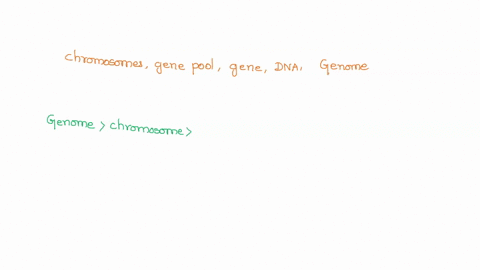 chromosomes, gene pool, gene, DNA, Genome
Genome > chromosome >